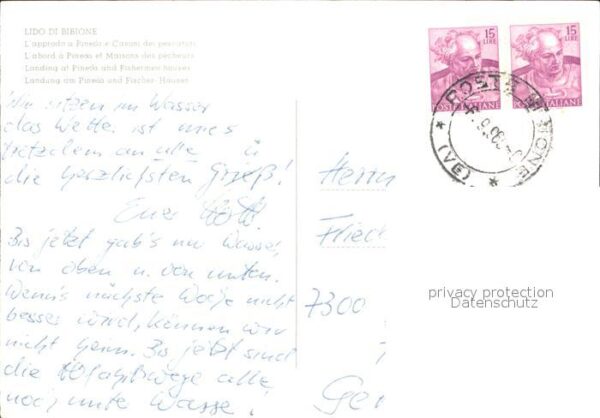 LIDO DI BIBIONE
L'approdo a Pineda e Casoni dei pescatori
L'abord à Pineda et Maisons des pêcheurs
Landing at Pineda and Fishermen houses
Landung am Pineda und Fischer-Hauser
15
LIRE
POSTE ITALIANE
15
LIRE
POSTE ITALIANE
POSTE BIBIONE
(VE)
Wir sitzen im Wasser
das Wetter ist mies
trotzdem an alle
die herzlichsten Grüße!
Euer
Bis jetzt gab's nur Wasser
von oben u. von unten.
Wenn's nächste Woche nicht
besser wird, können wir
nicht heim. Bis jetzt sind
die alle
noch unter Wasser!
Herrn
Fried
7300
privacy protection
Datenschutz